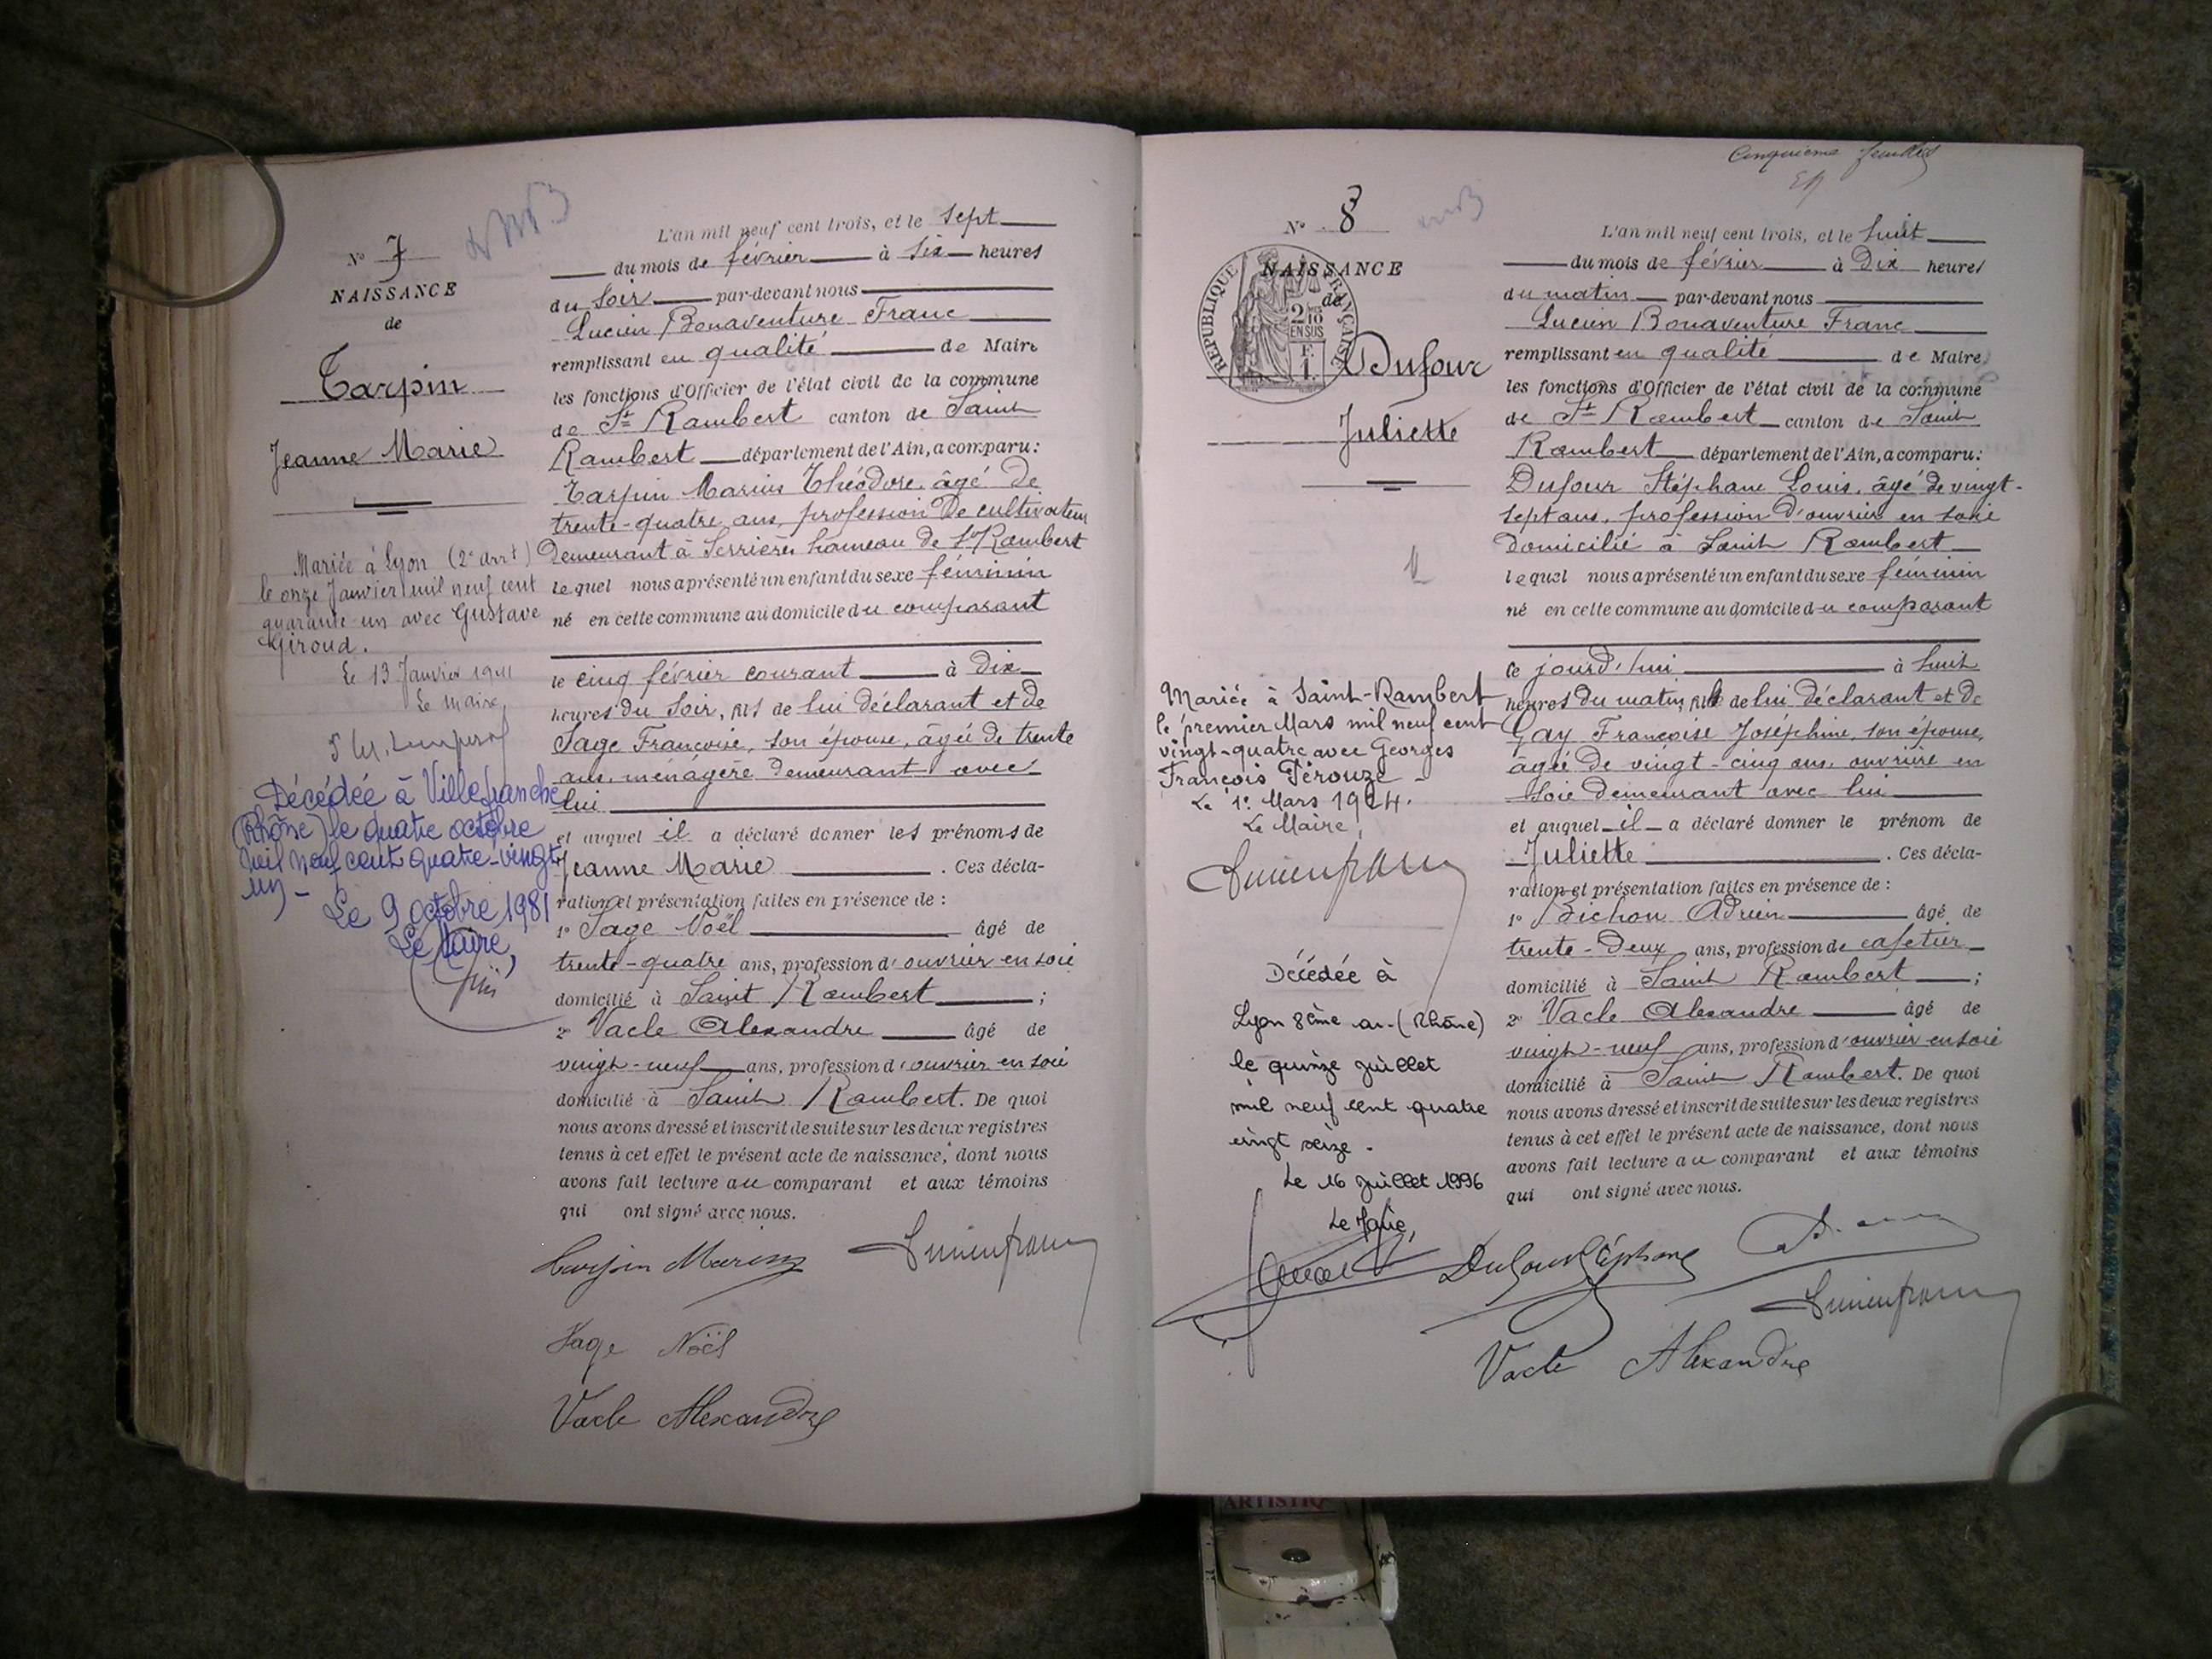 N° 7
NAISSANCE
de
Tarpin
Jeanne Marie
Mariée à Lyon (2e arrt)
le onze Janvier mil neuf cent
quarante-un avec Gustave
Giroud.
Le 13 Janvier 1941
Le Maire
Décédée à Villefranche
(Rhône) le quatre octobre
mil neuf cent quatre-vingt
un -
Le 9 octobre 1981
Le Maire,
L'an mil neuf cent trois, et le sept
du mois de février à six heures
du soir par-devant nous
Lucien Bonaventure Franc
remplissant en qualité de Maire
les fonctions d'Officier de l'état civil de la commune
de St Rambert canton de Saint
Rambert département de l'Ain, a comparu:
Tarpin Marius Théodore, âgé de
trente-quatre ans, profession de cultivateur
demeurant à Serrières hameau de St Rambert
lequel nous a présenté un enfant du sexe féminin
né en cette commune au domicile du comparant
le cinq février courant à dix
heures du soir, fils de lui déclarant et de
Sage Françoise, son épouse, âgée de trente
ans, ménagère demeurant avec
lui
et auquel il a déclaré donner les prénoms de
Jeanne Marie . Ces décla-
ration et présentation faites en présence de :
1° Sage Noël âgé de
trente-quatre ans, profession d'ouvrier en soie
domicilié à Saint Rambert ;
2° Vacle Alexandre âgé de
vingt-neuf ans, profession d'ouvrier en soie
domicilié à Saint Rambert. De quoi
nous avons dressé et inscrit de suite sur les deux registres
tenus à cet effet le présent acte de naissance, dont nous
avons fait lecture au comparant et aux témoins
qui ont signé avec nous.
Tarpin Marius Lucien franc
Sage Noël
Vacle Alexandre
Cinquième feuillet
N° 8
NAISSANCE
de
REPUBLIQUE FRANÇAISE
2/10
EN SUS
F.
1.
Dufour
Juliette
Mariée à Saint-Rambert
le premier Mars mil neuf cent
vingt-quatre avec Georges
François Pérouze -
Le 1er Mars 1924.
Le Maire,
Lucien franc
Décédée à
Lyon 8ème ar. (Rhône)
le quinze juillet
mil neuf cent quatre
vingt seize -
Le 16 juillet 1996
Le Maire,
L'an mil neuf cent trois, et le huit
du mois de février à dix heures
du matin par-devant nous
Lucien Bonaventure Franc
remplissant en qualité de Maire
les fonctions d'Officier de l'état civil de la commune
de St Rambert canton de Saint
Rambert département de l'Ain, a comparu:
Dufour Stéphane Louis, âgé de vingt-
sept ans, profession d'ouvrier en soie
domicilié à Saint Rambert
lequel nous a présenté un enfant du sexe féminin
né en cette commune au domicile du comparant
ce jourd'hui à huit
heures du matin, de lui déclarant et de
Gay Françoise Joséphine, son épouse,
âgée de vingt-cinq ans, ouvrière en
soie demeurant avec lui
et auquel il a déclaré donner le prénom de
Juliette . Ces décla-
ration et présentation faites en présence de :
1° Bichon Adrien âgé de
trente-deux ans, profession de cafetier
domicilié à Saint Rambert ;
2° Vacle Alexandre âgé de
vingt-neuf ans, profession d'ouvrier en soie
domicilié à Saint Rambert. De quoi
nous avons dressé et inscrit de suite sur les deux registres
tenus à cet effet le présent acte de naissance, dont nous
avons fait lecture au comparant et aux témoins
qui ont signé avec nous.
Dufour Stéphane
Lucien franc
Vacle Alexandre